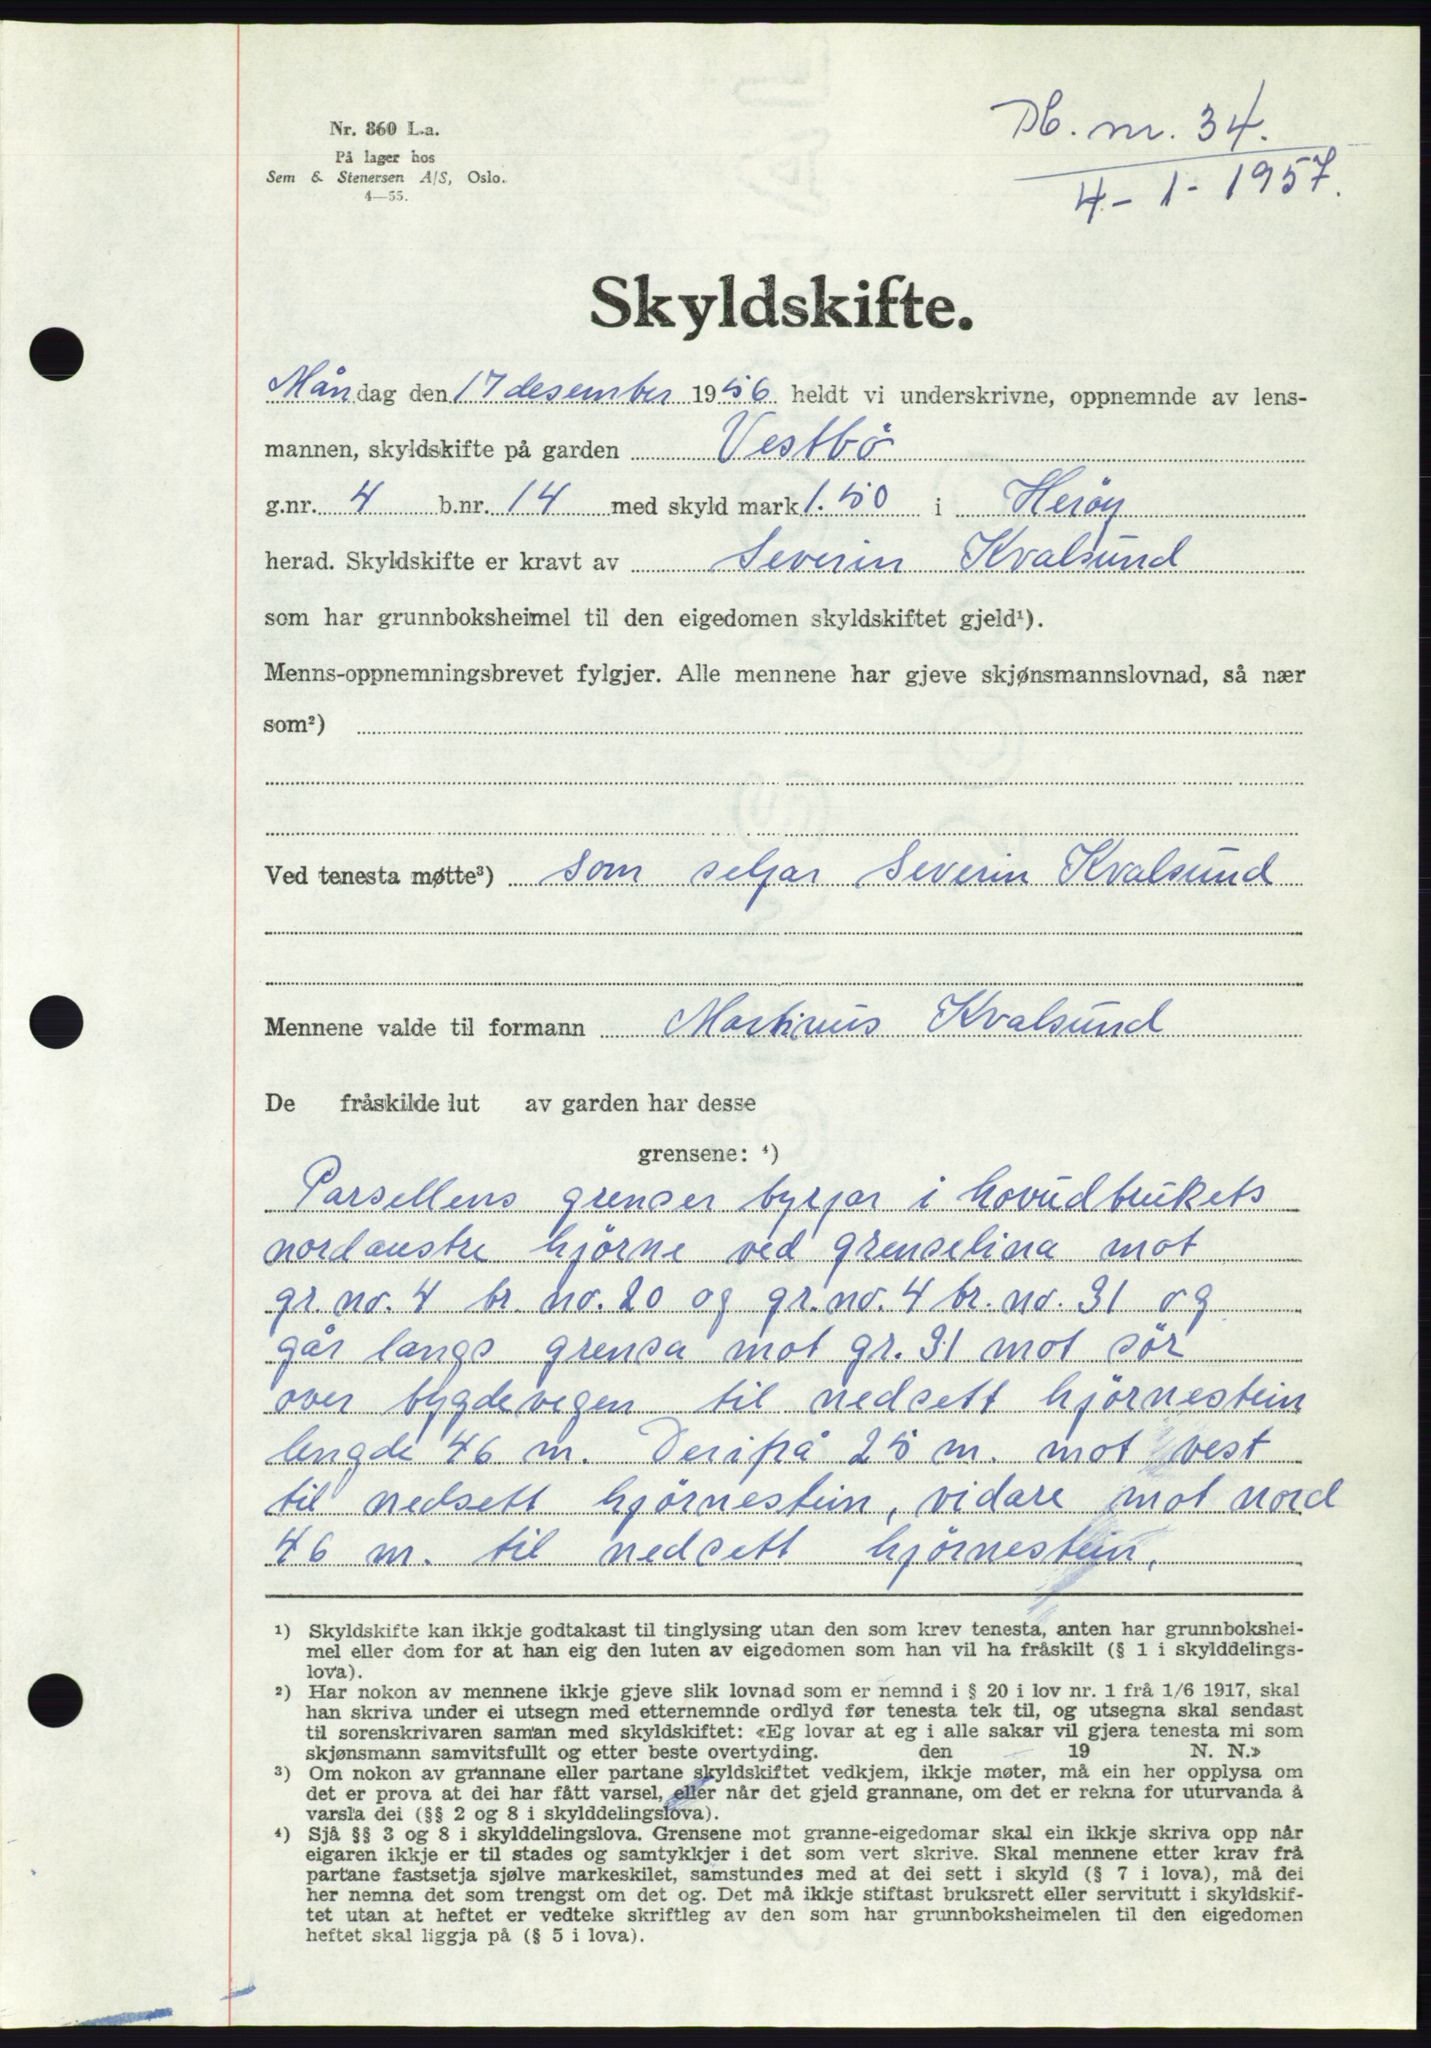 Nr. 860 L.a.
På lager hos
Sem & Stenersen A/S, Oslo.
4—55.
Db. nr. 34.
4 - 1 - 1957.
Skyldskifte.
Måndag den 17 desember 1956 heldt vi underskrivne, oppnemnde av lens-
mannen, skyldskifte på garden Vestbö
g.nr. 4 b.nr. 14 med skyld mark 1.50 i Heröy
herad. Skyldskifte er kravt av Severin Kvalsund
som har grunnboksheimel til den eigedomen skyldskiftet gjeld¹).
Menns-oppnemningsbrevet fylgjer. Alle mennene har gjeve skjønsmannslovnad, så nær
som²)
Ved tenesta møtte³) som seljar Severin Kvalsund
Mennene valde til formann Martinus Kvalsund
De fråskilde lut av garden har desse
grensene: ⁴)
Parsellens grenser byrjar i hovudbrukets
nordaustre hjörne ved grenselina mot
gr. no. 4 br. no. 20 og gr. no. 4 br. no. 31 og
går langs grensa mot gr. 31 mot sör
over bygdevegen til nedsett hjörnestein
lengde 46 m. Derifrå 25 m. mot vest
til nedsett hjörnestein, vidare mot nord
46 m. til nedsett hjörnestein,
¹) Skyldskifte kan ikkje godtakast til tinglysing utan den som krev tenesta, anten har grunnbokshei-
mel eller dom for at han eig den luten av eigedomen som han vil ha fråskilt (§ 1 i skylddelings-
lova).
²) Har nokon av mennene ikkje gjeve slik lovnad som er nemnd i § 20 i lov nr. 1 frå 1/6 1917, skal
han skriva under ei utsegn med etternemnde ordlyd før tenesta tek til, og utsegna skal sendast
til sorenskrivaren saman med skyldskiftet: «Eg lovar at eg i alle sakar vil gjera tenesta mi som
skjønsmann samvitsfullt og etter beste overtyding. den 19 N. N.»
³) Om nokon av grannane eller partane skyldskiftet vedkjem, ikkje møter, må ein her opplysa om
det er prova at dei har fått varsel, eller når det gjeld grannane, om det er rekna for uturvanda å
varsla dei (§§ 2 og 8 i skylddelingslova).
⁴) Sjå §§ 3 og 8 i skylddelingslova. Grensene mot granne-eigedomar skal ein ikkje skriva opp når
eigaren ikkje er til stades og samtykkjer i det som vert skrive. Skal mennene etter krav frå
partane fastsetja sjølve markeskilet, samstundes med at dei sett i skyld (§ 7 i lova), må dei
her nemna det som trengst om det og. Det må ikkje stiftast bruksrett eller servitutt i skyldskif-
tet utan at heftet er vedteke skriftleg av den som har grunnboksheimelen til den eigedomen
heftet skal liggja på (§ 5 i lova).